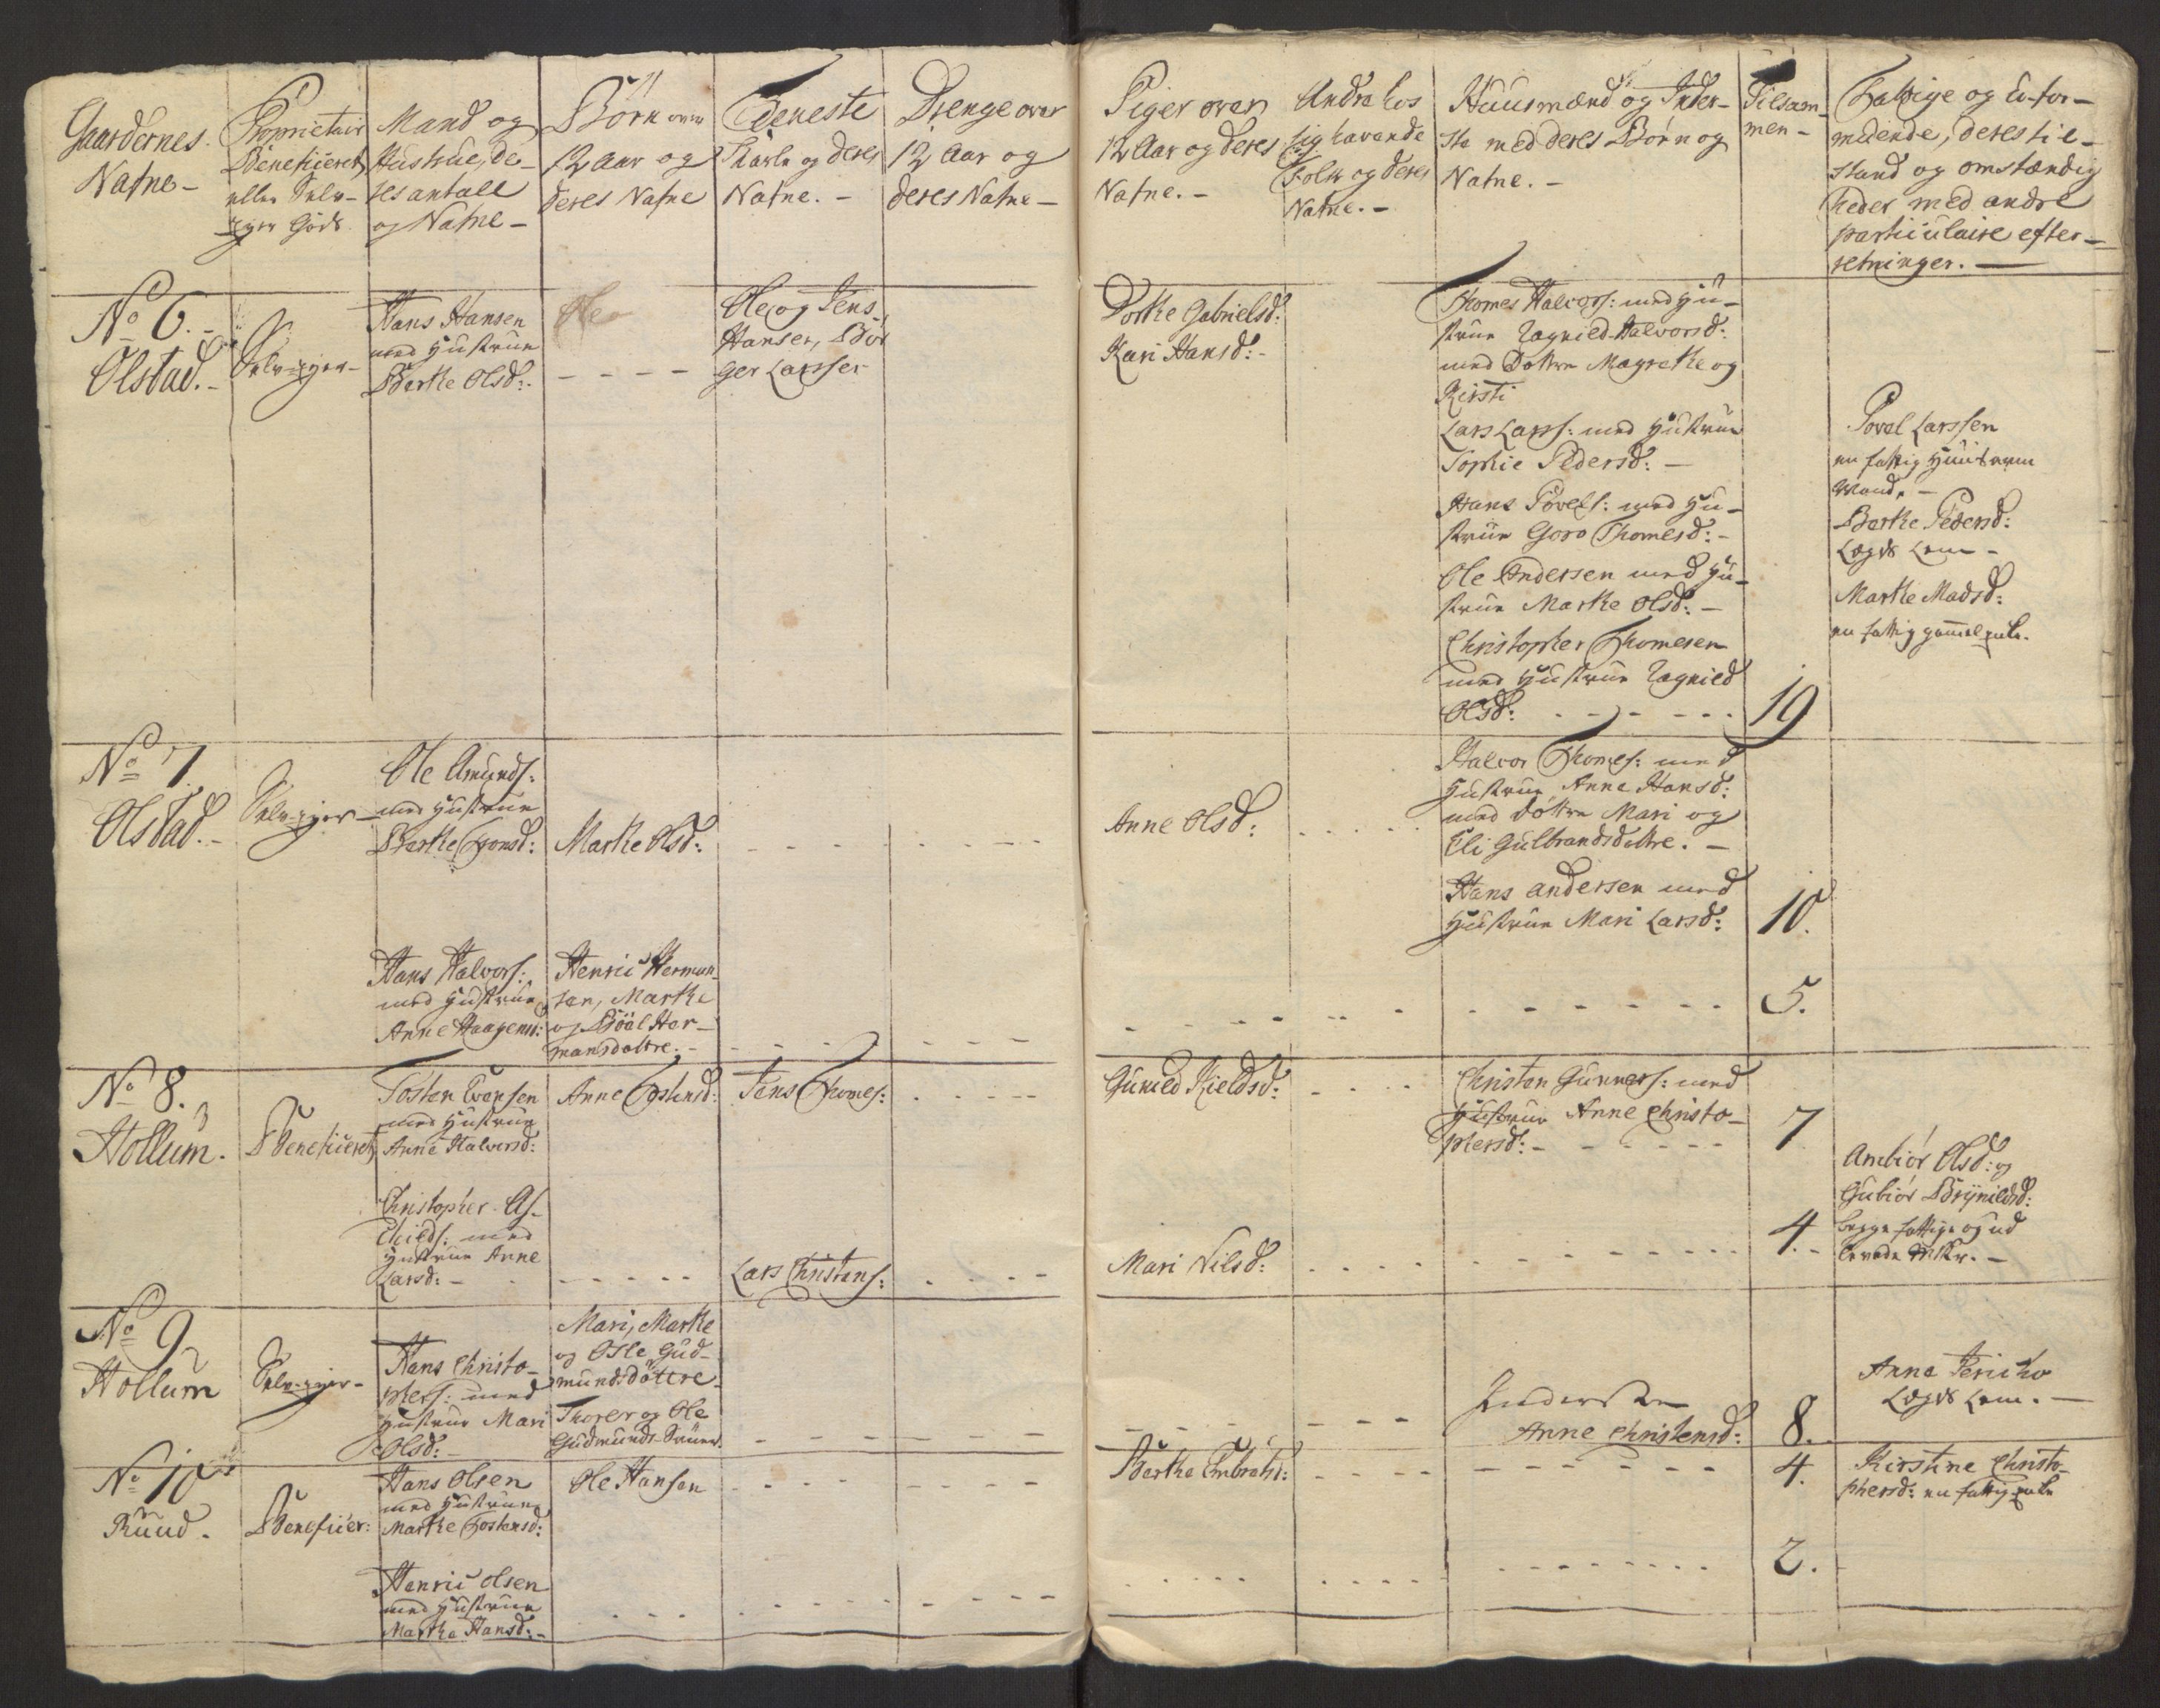 Gaardernes
Nafne-
Proprietair
Beneficeret
eller Selv-
eyer Gods
Mand og
Hustrue, de-
res antall
og Nafne-
Børn over
12 aar og
deres Nafne
Tieneste
Karle og deres
Nafne.-
Drenge over
12 Aar og
deres Nafne-
Piger over
12 Aar og deres
Nafne.-
Andre hos
sig havende
Folk og deres
Nafne.-
Huusmænd og Inder-
ste med deres Børn og
Nafne.-
Tilsam-
men-
Fattige og Ufor-
muende, deres til-
stand og omstændig
heder med andre
particulaire efter-
retninger.-
No 6.-
Olstad.-
Selv-eyer-
Hans Hansen
med Hustrue
Berthe Olsd:-
Ole
Ole og Jens
Hansen, Bør
ger Larssen
Dorthe Gabrielsd:
Kari Hansd:-
Thomes Halvors: med Hu-
strue Ragnild Halvorsd:
med Dottre Magrethe og
Kirsti
Lars Larss: med Hustrue
Sophie Pedersd:-
Hans Povels: med Hu-
strue Goro Thomesd:-
Ole Andersen med Hu-
strue Marthe Olsd:-
Christopher Thomesen
med Hustrue Ragnild
Olsd: - - - - - 19
Povel Larssen
en fattig Huusarm
Mand.-
Berthe Pedersd:
Lægds Lem-
Marthe Madsd:
en fattig gammel enke.
No 7.
Olstad.-
Selv-eyer-
Ole Amunds:
med Hustrue
Berthe Tronsd:
Marthe Olsd:
Anne Olsd:
Halvor Thomes: med
Hustrue Anne Hansd:
med Döttre Mari og
Eli Gulbrandsdöttre.-
Hans andersen med
Hustrue Mari Larsd: 10.
Hans Halvors:
med Hustrue
Anne Haagensd:
Henric Herman-
sen, Marthe
og Böel Her-
mansdöttre.-
5.
No 8.
Hollum.
Beneficeret
Tosten Evensen
med Hustrue
Anne Halvorsd:
Anne Tostensd:
Jens Thomes:
Gunild Kieldsd:
Christen Gunners: med
Hustrue Anne Christo-
phersd:- - - - 7
Christopher As-
childs: med
Hustrue Anne
Larsd:-
Lars Christens:
Mari Nilsd:
4.-
Ambiör Olsd: og
Gubiör Brynildsd:
begge fattige og ud
levede Enker.-
No 9
Hollum
Selv-eyer-
Hans Christo-
phers: med
Hustrue Mari
Olsd:-
Mari, Marthe
og Osle Gud-
mundsdöttre
Thorer og Ole
Gudmunds Sönner.
Inderste
Anne Christensd: 8.
Anne Jericho
Lægds Lem.-
No 10
Ruud.
Beneficer:
Hans Olsen
med Hustrue
Marthe Tostensd:
Ole Hansen
Berthe Embretsd:
4.
Kirstine Christo-
phersd: en fattig enke
Henric Olsen
med Hustrue
Marthe Hansd:-
2.